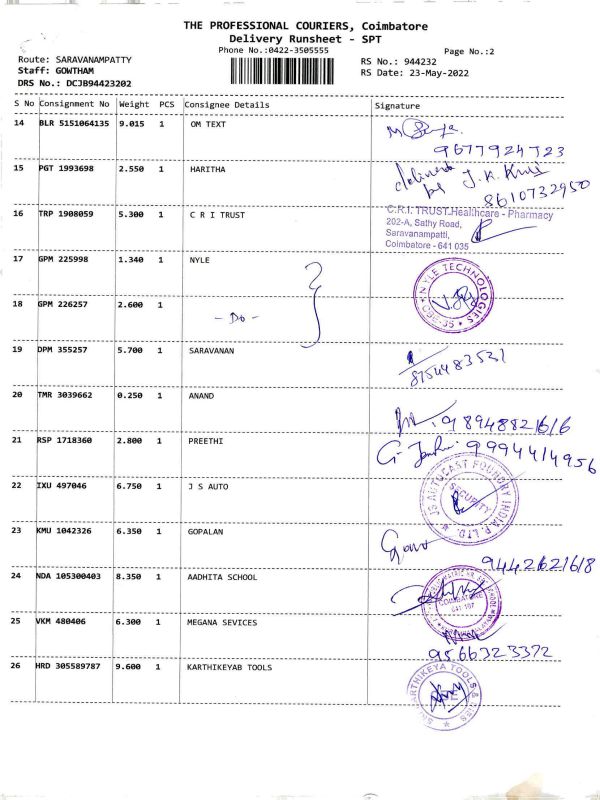 THE PROFESSIONAL COURIERS, Coimbatore
Delivery Runsheet - SPT
Phone No.:0422-3505555
Page No.:2
Route: SARAVANAMPATTY
RS No.: 944232
Staff: GOWTHAM
RS Date: 23-May-2022
DRS No.: DCJB94423202
S No Consignment No Weight PCS Consignee Details Signature
14 BLR 5151064135 9.015 1 OM TEXT
9677924723
15 PGT 1993698 2.550 1 HARITHA
8610732950
16 TRP 1908059 5.300 1 C R I TRUST
C.R.I. TRUST.Healthcare - Pharmacy
202-A, Sathy Road,
Saravanampatti,
Coimbatore - 641 035
17 GPM 225998 1.340 1 NYLE
NYLE TECHNOLOGIES
CBE-35
18 GPM 226257 2.600 1
- Do -
19 DPM 355257 5.700 1 SARAVANAN
8754483531
20 TMR 3039662 0.250 1 ANAND
9894882161
21 RSP 1718360 2.800 1 PREETHI
9994414956
22 IXU 497046 6.750 1 J S AUTO
JS AUTOCAST FOUNDRY INDIA P.LTD.
SECURITY
23 KMU 1042326 6.350 1 GOPALAN
9442621618
24 NDA 105300403 8.350 1 AADHITA SCHOOL
COIMBATORE
641 107
25 VKM 480406 6.300 1 MEGANA SEVICES
9566323372
26 HRD 305589787 9.600 1 KARTHIKEYAB TOOLS
KARTHIKEYA TOOLS &